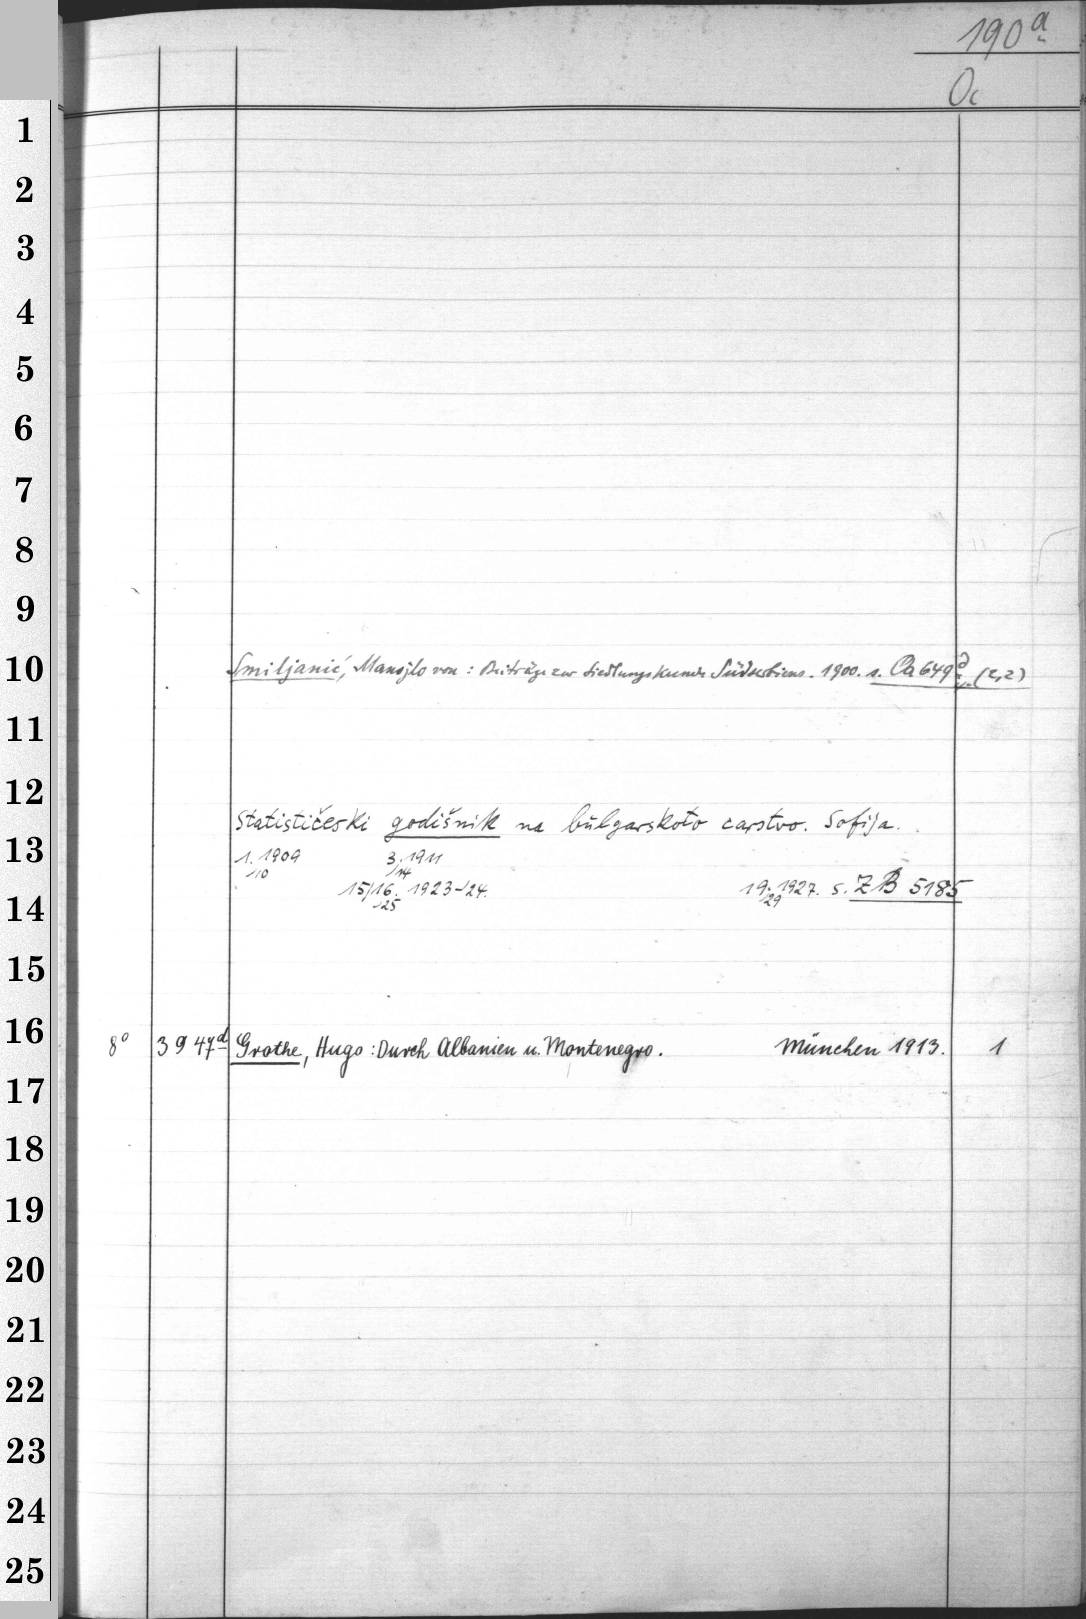 190a
Oc
1
2
3
4
5
6
7
8
9
10 Smiljanić, Manojlo von: Beiträge zur Siedlungskunde Südserbiens. 1900. s. Ca 649 d (2,2)
11
12
Statističeski godišnik na bŭlgarskoto carstvo. Sofija.
13 1. 1909 3. 1911
/10 /14
15/16. 1923-24. 19. 1927. s. ZB 5185
14 /25 /29
15
16
8° 3947d Grothe, Hugo: Durch Albanien u. Montenegro. München 1913. 1
17
18
19
20
21
22
23
24
25